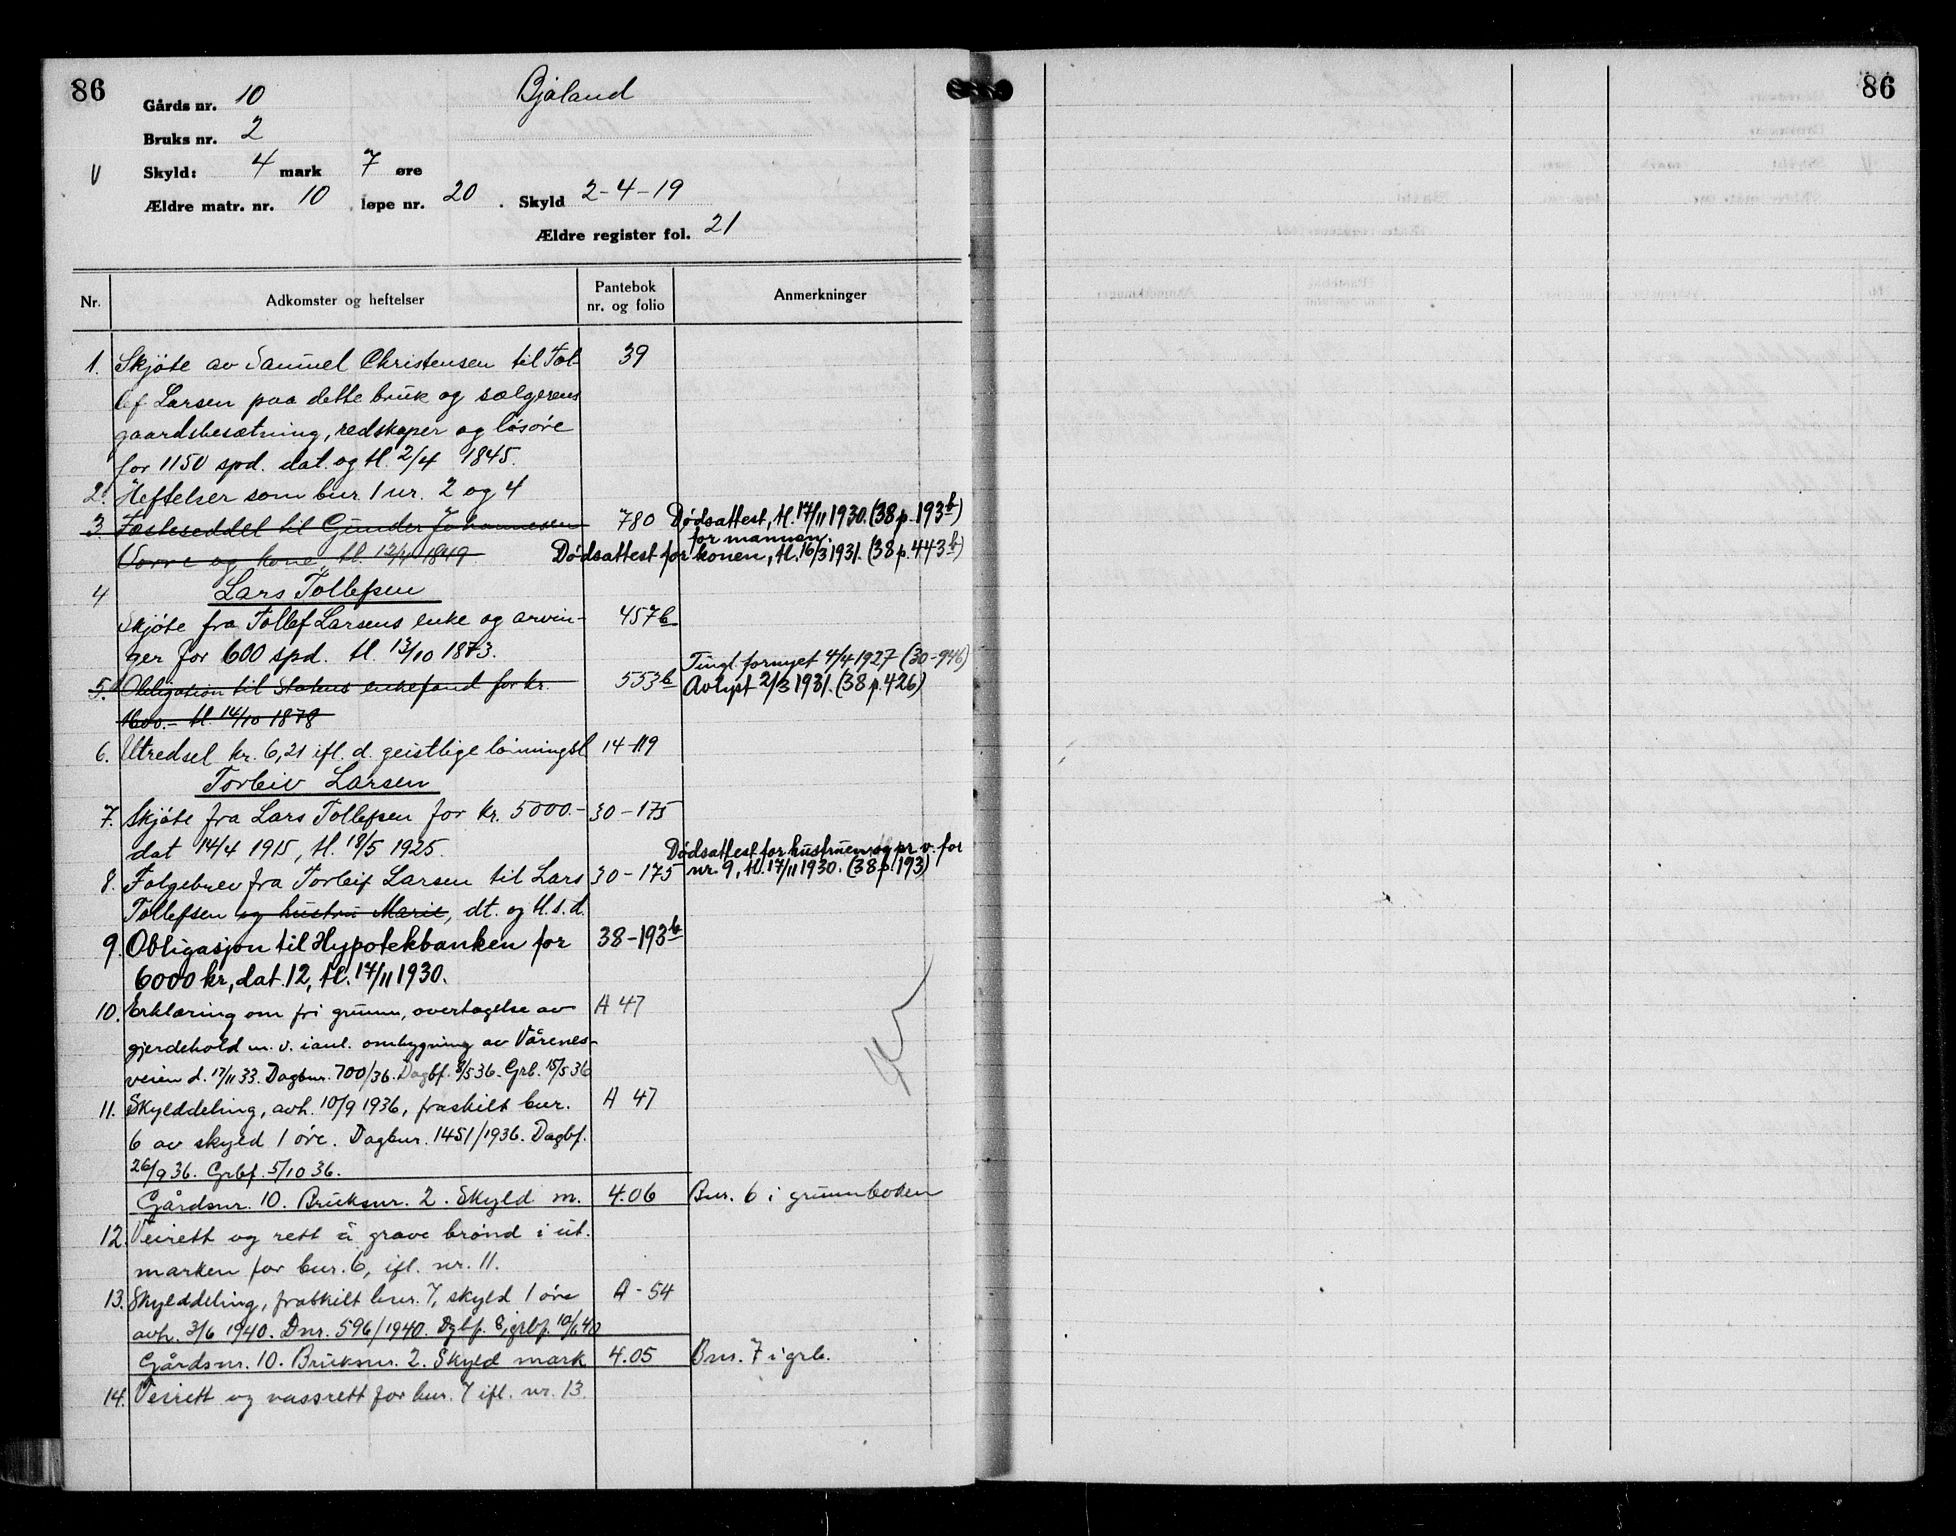 86
Gårds nr. 10 Bjåland
Bruks nr. 2
V Skyld: 4 mark 7 øre
Ældre matr. nr. 10 løpe nr. 20 . Skyld 2-4-19
Ældre register fol. 21
Nr. Adkomster og heftelser Pantebok nr. og folio Anmerkninger
1. Skjöte av Samuel Christensen til Tol- 39
lef Larsen paa dette bruk og sælgerens
gaardsbesætning, redskaper og løsöre
for 1150 spd. dat. og tl. 2/4 1845.
2. Heftelser som bnr. 1 nr. 2 og 4
3 Fæsteseddel til Gunder Johannesen 780 Dødsattest, tl. 17/11 1930. (38 p. 193b)
for mannen.
Vorre og kone, tl. 12/4 1849. Dødsattest for konen, tl. 16/3 1931. (38 p. 443b)
4 Lars Tollefsen
Skjöte fra Tollef Larsens enke og arvin- 457b
ger for 600 spd. tl. 13/10 1873.
Tingl. fornyet 4/4 1927 (30-946)
5. Obligation til Statens enkefond for kr. 553b Avlyst 2/3 1931. (38 p. 426)
1600.- tl. 14/10 1878
6. Utredsel kr. 6,21 ifl. d. geistlige lönningsl 14-119
Torleiv Larsen
7. Skjöte fra Lars Tollefsen for kr. 5000.- 30-175
dat 14/4 1915, tl. 18/5 1925.
Dødsattest for hustruen, og pr. v. for
8. Folgebrev fra Torleif Larsen til Lars 30-175 nr. 9, tl. 17/11 1930. (38 p. 193)
Tollefsen og hustru Marie, dt. og tl. s. d.
9. Obligasjon til Hypotekbanken for 38-193b
6000 kr, dat. 12, tl. 17/11 1930.
10. Erklæring om fri grunn, overtagelse av A 47
gjerdehold m. v. i anl. ombygning av Vårenes-
veien d. 17/11 33. Dagbnr. 700/36. Dagbf. 8/5 36. Grb. 15/5 36
11. Skylddeling, avh. 10/9 1936, fraskilt bnr. A 47
6 av skyld 1 öre. Dagbnr. 1451/1936. Dagbf.
26/9 36. Grbf. 5/10 36.
Gårdsnr. 10. Bruksnr. 2. Skyld m. 4.06 Bnr. 6 i grunnboken
12. Veirett og rett å grave brönd i ut.
marken for bnr. 6, ifl. nr. 11.
13. Skylddeling, fraskilt bnr. 7, skyld 1 öre A-54
avh. 3/6 1940. Dnr. 596/1940. Dgbf. 8, grbf. 10/6 40
Gårdsnr. 10. Bruksnr. 2. Skyld mark 4.05 Bnr. 7 i grb.
14. Veirett og vassrett for bnr. 7 ifl. nr. 13.
86